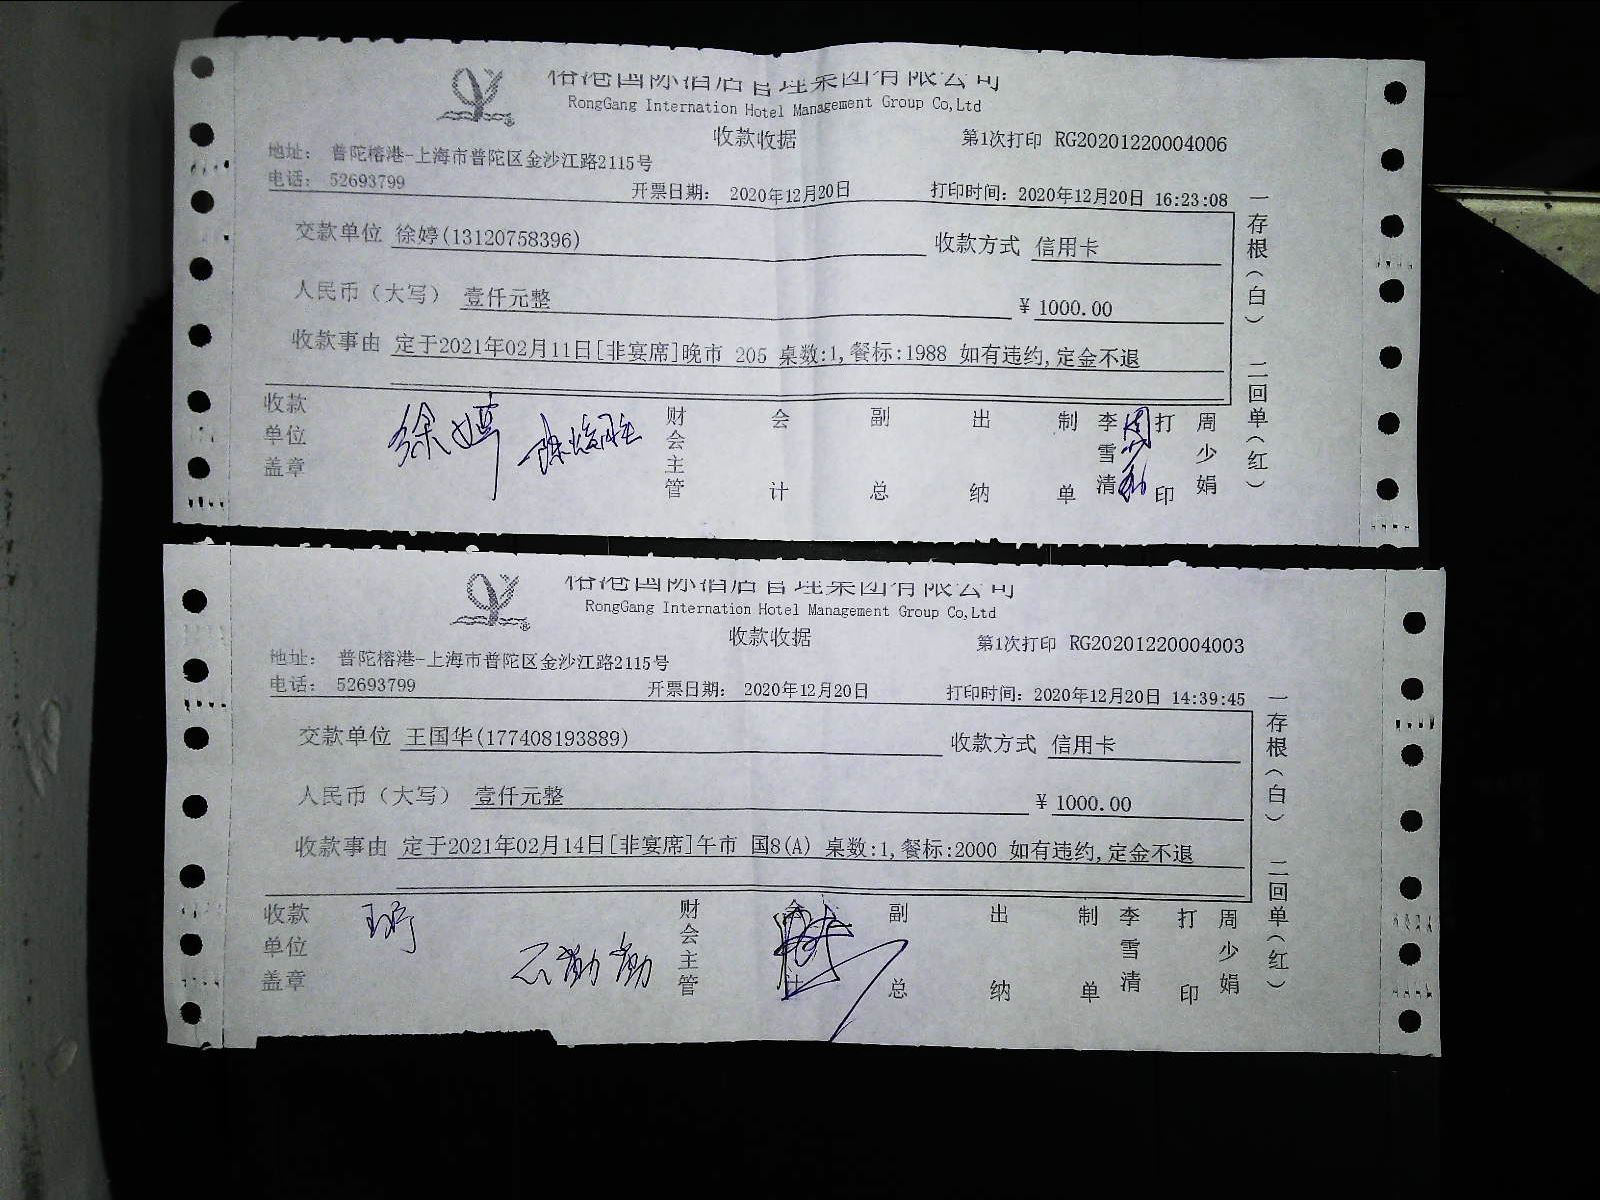 榕港国际酒店管理集团有限公司
RongGang Internation Hotel Management Group Co,Ltd
收款收据 第1次打印 RG20201220004006
地址: 普陀榕港-上海市普陀区金沙江路2115号
电话: 52693799 开票日期: 2020年12月20日 打印时间: 2020年12月20日 16:23:08
交款单位 徐婷(13120758396) 收款方式 信用卡
人民币(大写) 壹仟元整 ¥ 1000.00
收款事由 定于2021年02月11日[非宴席]晚市 205 桌数:1,餐标:1988 如有违约,定金不退
收款单位盖章 徐婷 财会主管 会计 副总 出纳 制单 李雪清 打印 周少娟
一存根(白) 二回单(红)
榕港国际酒店管理集团有限公司
RongGang Internation Hotel Management Group Co,Ltd
收款收据 第1次打印 RG20201220004003
地址: 普陀榕港-上海市普陀区金沙江路2115号
电话: 52693799 开票日期: 2020年12月20日 打印时间: 2020年12月20日 14:39:45
交款单位 王国华(177408193889) 收款方式 信用卡
人民币(大写) 壹仟元整 ¥ 1000.00
收款事由 定于2021年02月14日[非宴席]午市 国8(A) 桌数:1,餐标:2000 如有违约,定金不退
收款单位盖章 财会主管 会计 副总 出纳 制单 李雪清 打印 周少娟
一存根(白) 二回单(红)